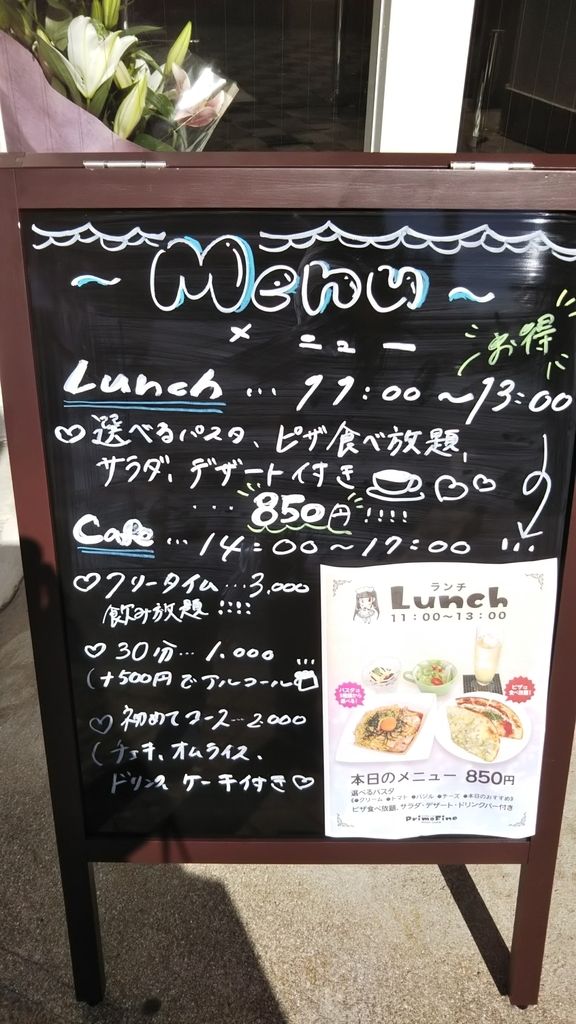 ~ Menu ~
メニュー
お得
Lunch … 11:00~13:00
♡ 選べるパスタ、ピザ食べ放題、
サラダ、デザート付き ♡♡
… 850円 !!!!
Cafe … 14:00~17:00 …
♡ フリータイム … 3.000
飲み放題 !!!!
♡ 30分 … 1.000
(+500円でアルコール
♡ 初めてコース … 2.000
(チェキ、オムライス、
ドリンク ケーキ付き♡
ランチ
Lunch
11:00~13:00
パスタは
選べる!
ピザは
食べ放題!
本日のメニュー 850円
選べるパスタ
《●クリーム ●トマト ●バジル ●チーズ ●本日のおすすめ》
ピザ食べ放題、サラダ・デザート・ドリンクバー付き
PrimeFine